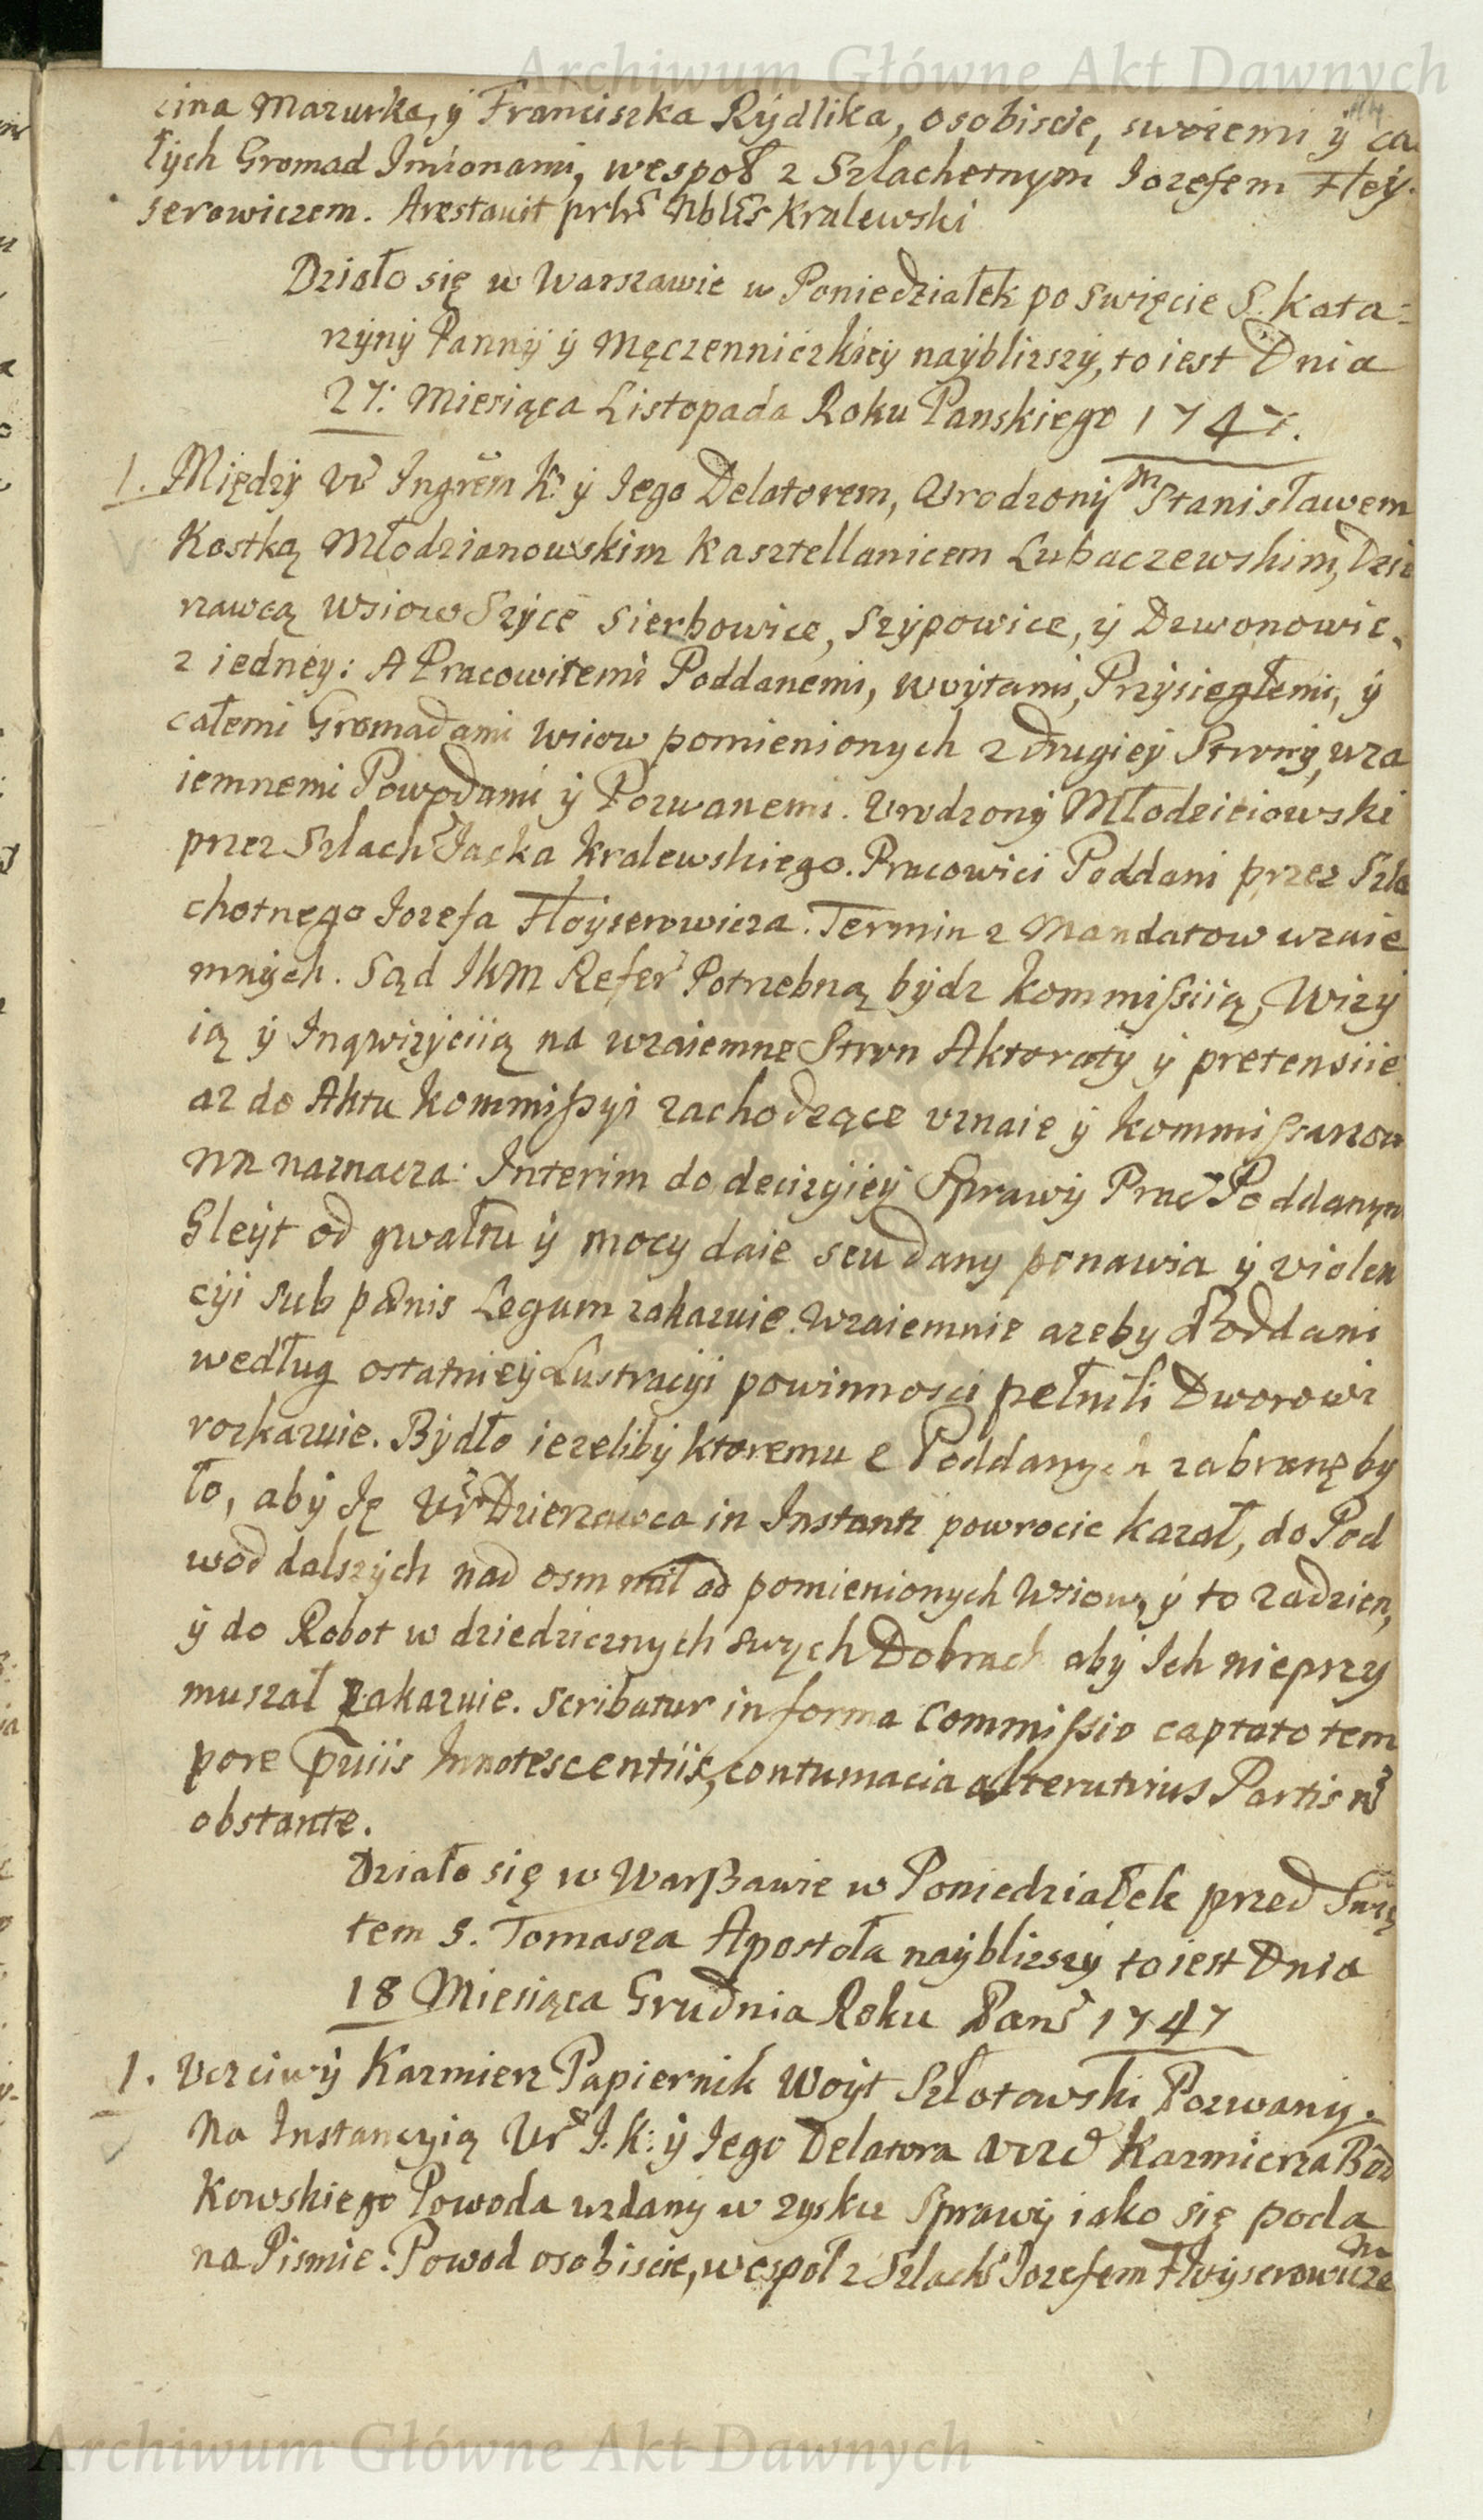 Archiwum Główne Akt Dawnych
cina Mazurka, ÿ Franciszka Rÿdlika, osobiscie, swoiemi ÿ ca
łych Gromad Jmionami, wespoł z Szlachetnym Iozefem Fleÿ-
serowiczem. Arestavit Kralewski
Działo się w Warszawie w Poniedziałek po Swięcie S. Kata=
rzÿnÿ Pannÿ ÿ Męczenniczkiey naÿblizszÿ, to iest Dnia
27. Miesiąca Listopada Roku Panskiego 1747.
1. Międzÿ Ur Jngrem K. ÿ Iego Delatorem, Urodzonÿm Stanisławem
Kostką Młodzianowskim Kasztellanicem Lubaczewskim, Dzie
rzawcą Wsiow Szÿce Sierbowice, Szÿpowice, ÿ Dzwonowic.
z iedneÿ: A Pracowitemi Poddanemi, Woÿtami, Przÿsięgłemi, ÿ
całemi Gromadami Wsiow pomienionych z drugieÿ Stronÿ, wza
iemnemi Powodami ÿ Pozwanemi. Urodzonÿ Młodzieiowski
przez Szlach Jacka Kralewskiego. Pracowici Poddani przez Szla
chotnego Iozefa Floÿserowicza. Termin z Mandatow wzaie
mnÿch. Sąd JKM Refer Potrzebną bÿdz Kommissiią, Wizÿ
ią ÿ Jnqwizÿciią na wzaiemne Stron Aktoratÿ ÿ pretensiie
az do Aktu Kommissyi zachodzące uznaie ÿ Kommissarzow
NN naznacza. Interim do decizÿieÿ Sprawÿ Prac Poddanym
Gleÿt od gwałtu ÿ mocy daie seu dany ponawia ÿ violen
cyi sub pænis Legum zakazuie. Wzaiemnie azeby Poddani
według ostatnieÿ Lustracyi powinnosci pełnili Dworowi
rozkazuie. Bÿdło iezelibÿ ktoremu z Poddanych zabranę by
ło, abÿ Ję Ur Dzierzawca in Instanti powrocic kazał, do Pod
wod dalszÿch nad osm mil od pomienionych Wsiow, ÿ to za dzien,
ÿ do Robot w dziedzicznych swych Dobrach abÿ Ich nieprzy
muszał zakazuie. Scribatur in forma Commissio captato tem
pore Innotescentiis, contumacia alterutrius Partis n
obstante.
Działo się w Warszawie w Poniedziałek przed Swię
tem S. Tomasza Apostoła naÿblizszÿ to iest Dnia
18 Miesiąca Grudnia Roku Pans 1747
1. Uczciwÿ Kazmierz Papiernik Woÿt Szłotowski Pozwanÿ.
Na Instancyią Ur J. K. ÿ Iego Delatora Uczc Kazmierza Bod
Kowskiego Powoda wzdanÿ w zysku Sprawÿ iako się poda
na Pismie. Powod osobiscie, wespoł z Szlach Iozefem Floÿserowicze
m
Archiwum Główne Akt Dawnych